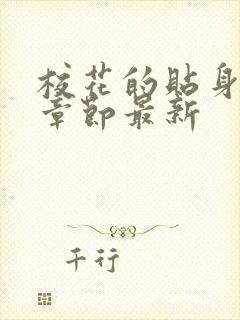 校花的贴身
章节最新
千行